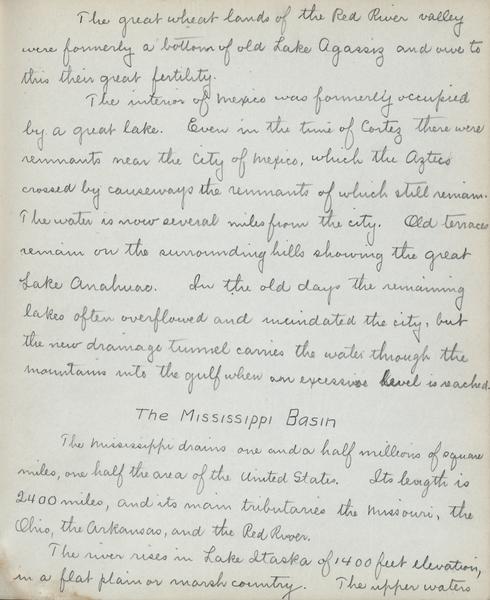 The great wheat lands of the Red River valley
were formerly a bottom of old Lake Agassiz and owe to
this their great fertility.
The interior of Mexico was formerly occupied
by a great lake. Even in the time of Cortez there were
remnants near the City of Mexico, which the Aztecs
crossed by causeways the remnants of which still remain.
The water is now several miles from the city. Old terraces
remain on the surrounding hills showing the great
Lake Anahuac. In the old days the remaining
lakes often overflowed and inundated the city, but
the new drainage tunnel carries the water through the
mountains into the gulf when an excessive level is reached.
The Mississippi Basin
The Mississippi drains one and a half millions of square
miles, one half the area of the United States. Its length is
2400 miles, and its main tributaries the Missouri, the
Ohio, the Arkansas, and the Red River.
The river rises in Lake Itaska of 1400 feet elevation,
in a flat plain or marsh country. The upper waters